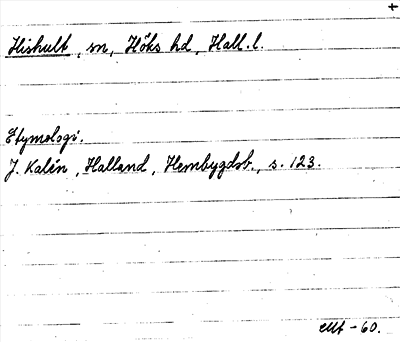 +
Hishult, sn, Höks hd, Hall. l.
Etymologi.
J. Kalén, Halland, Hembygdsb., s. 123.
-60.